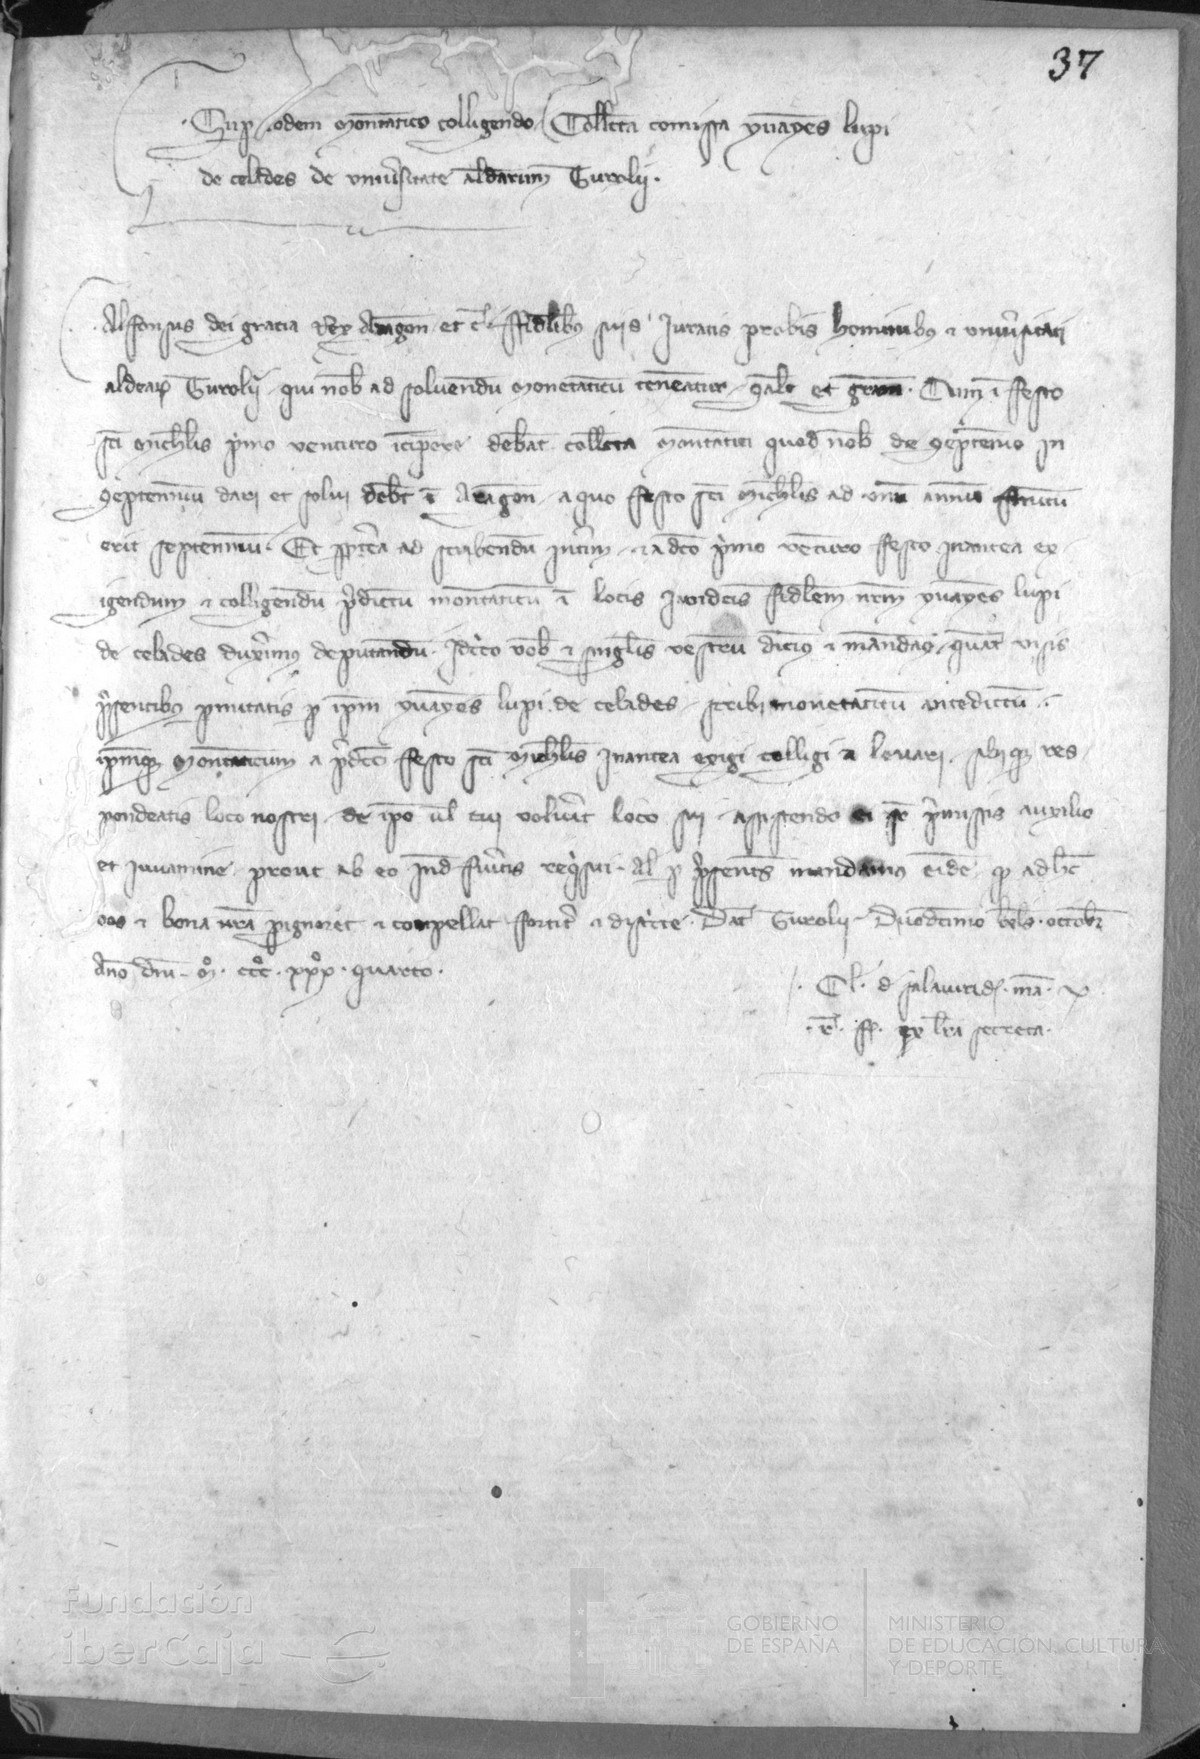 37
Sup eodem monetatico colligendo Collecta comissa yuayes lupi
de celades de uniusitate aldearum Turolij.
Alfonsus dei gracia Rex Aragon et c̄ ffidelibus suis Juratis probis hominibus et uniusitati
aldeaꝝ Turolij qui nob ad soluendū monetaticū teneatur salt et gram. Cum ī festo
sci michlis primo venturo incipere debeat collecta monetatici quod nob de septenio in
septenniū dari et solui debet ī Aragon a quo festo sci michlis ad unū annū finitū
erit septenniū. Et ppterea ad scribendū Interim et a dco primo venturo festo inantea ex
igendum et colligendū predictū monetaticū ī locis fidelem nrm yuayes lupi
de celades duximus deputandū. Idcirco vob et singlis vestrū dicimus et mandamus quatū visis
presentibus pmittatis p ipm yuayes lupi de celades scribi monetaticū antedictū
ipmque monetaticum a predco festo sci michlis Inantea exigi colligi et leuari sibique res
pondeatis loco nostri de ipo ul cui voluerit loco sui assistendo ei sr premissis auxilio
et iuuamine prout ab eo Inde fueritis requisiti. Al p presentes mandamus eidē qd ad hec
vos et bona vra pignoret et compellat fortiter et districte. Dat Turolij Duodecimo kls octobr
Año dni. mº. cccº. xxxº. quarto.
Cl. d salauid. mā. x
ex lra secreta.
Fundación
iberCaja
GOBIERNO
DE ESPAÑA
MINISTERIO
DE EDUCACIÓN, CULTURA
Y DEPORTE